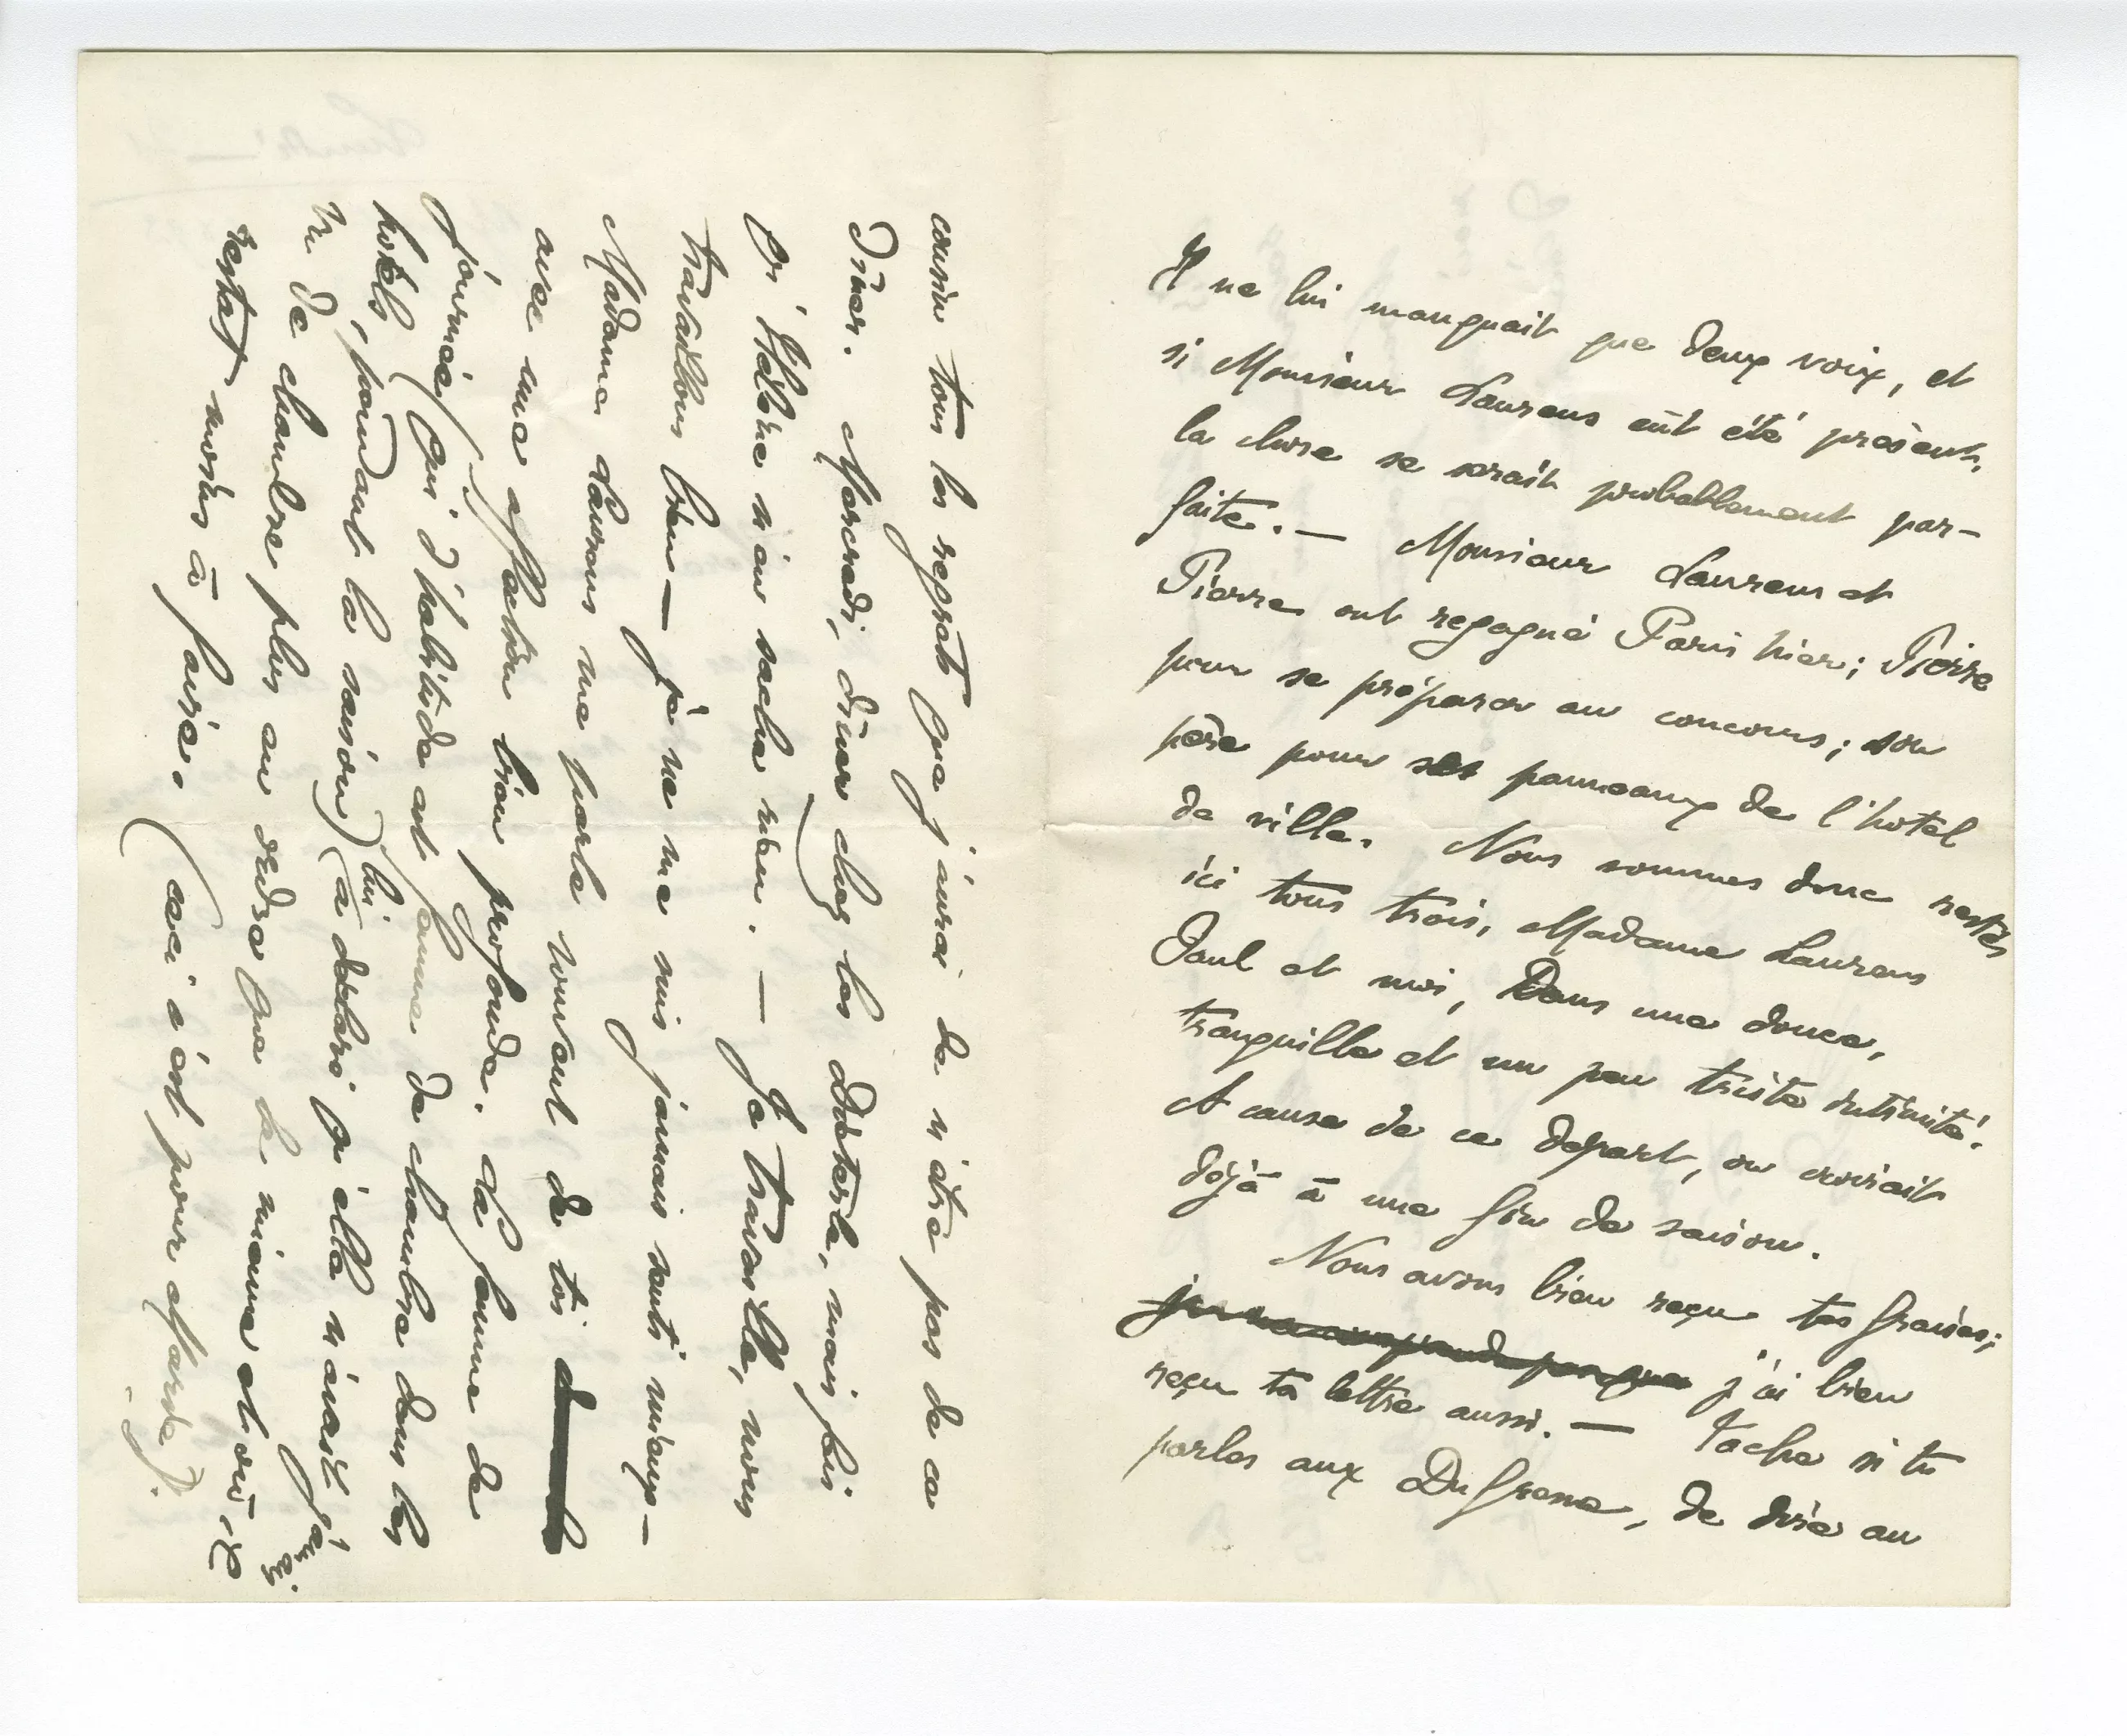 Il ne lui manquait que deux voix, et
si Monsieur Laurens eût été présent,
la chose se serait probablement par-
faite. — Monsieur Laurens et
Pierre ont regagné Paris hier ; Pierre
pour se préparer au concours ; son
père pour ses panneaux de l'hotel
de ville. Nous sommes donc restés
ici tous trois, Madame Laurens
Paul et moi, Dans une douce,
tranquille et un peu triste intimité.
A cause de ce départ, on croirait
déjà à une fin de saison.
Nous avons bien reçu tes fraises ;
j'ai bien
reçu ta lettre aussi. — Tache si tu
parles aux Dufresne, de dire au
cousin tous les regrets que j'aurai de n'être pas de ce
diner. Mercredi, diner chez les Dieterle, mais fais
qu'Hélène n'en sache rien. — Je travaille, nous
travaillons bien — je ne me suis jamais senti mieux —
Madame Laurens me parle souvent de toi
avec une affection bien profonde. La femme de
journée (qui d'habitude est femme de chambre dans les
hotels, pendant la saison) lui a déclaré qu'elle n'avait jamais
vu de chambre plus en ordre que la mienne et où il
restat moins à faire. (ceci c'est pour Marie).